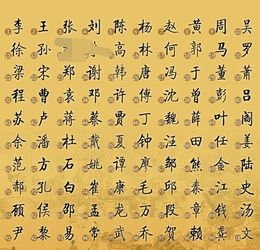 李 王 张 刘 陈 杨 赵 黄 周 吴
徐 孙 高 林 何 郭 马 罗
梁 宋 郑 谢 韩 唐 冯 于 董 萧
程 曹 袁 邓 许 傅 沈 曾 彭 吕
苏 卢 蒋 蔡 贾 丁 魏 薛 叶 阎
余 潘 杜 戴 夏 钟 汪 田 任 姜
范 方 石 姚 谭 廖 邹 熊 金 陆
郝 孔 白 崔 康 毛 邱 秦 江 史
顾 侯 邵 孟 龙 万 段 章 钱 汤
尹 黎 易 常 武 乔 贺 赖 龚 文